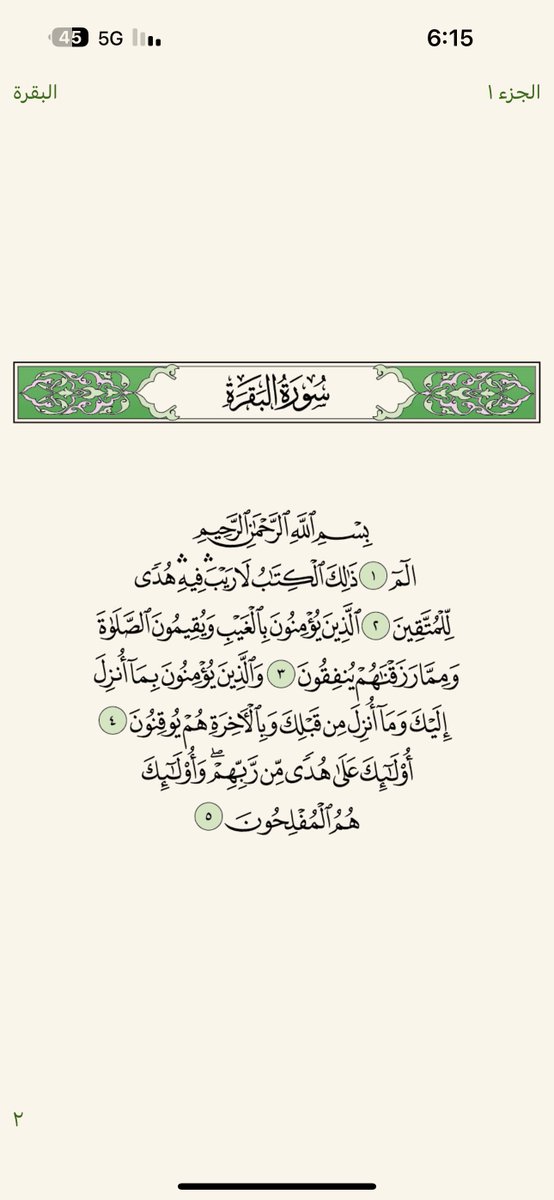 45 5G 6:15
البقرة الجزء ١
سُورَةُ البَقَرَةِ
بِسْمِ ٱللَّهِ ٱلرَّحْمَٰنِ ٱلرَّحِيمِ
الٓمٓ ١ ذَٰلِكَ ٱلْكِتَٰبُ لَا رَيْبَۛ فِيهِۛ هُدًى
لِّلْمُتَّقِينَ ٢ ٱلَّذِينَ يُؤْمِنُونَ بِٱلْغَيْبِ وَيُقِيمُونَ ٱلصَّلَوٰةَ
وَمِمَّا رَزَقْنَٰهُمْ يُنفِقُونَ ٣ وَٱلَّذِينَ يُؤْمِنُونَ بِمَآ أُنزِلَ
إِلَيْكَ وَمَآ أُنزِلَ مِن قَبْلِكَ وَبِٱلْأَخِرَةِ هُمْ يُوقِنُونَ ٤
أُو۟لَٰٓئِكَ عَلَىٰ هُدًى مِّن رَّبِّهِمْۖ وَأُو۟لَٰٓئِكَ
هُمُ ٱلْمُفْلِحُونَ ٥
٢